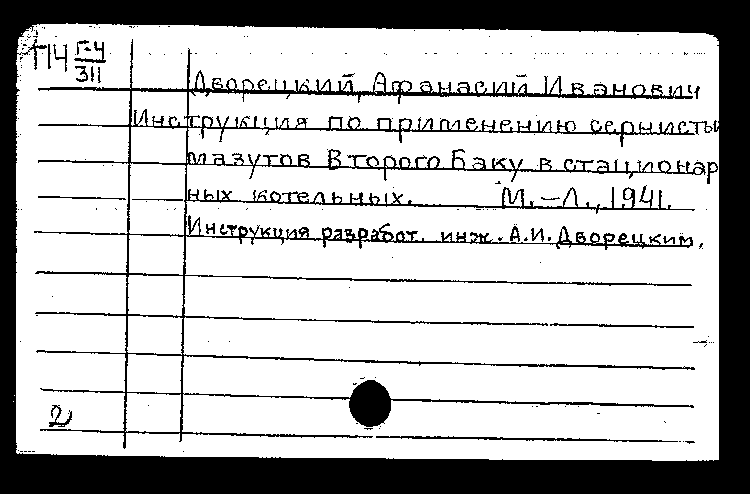 П4 Г-4
311
Дворецкий, Афанасий Иванович
Инструкция по применению сернисты
мазутов Второго Баку в стационар
ных котельных. М.-Л., 1941.
Инструкция разработ. инж. А.И. Дворецким.
2